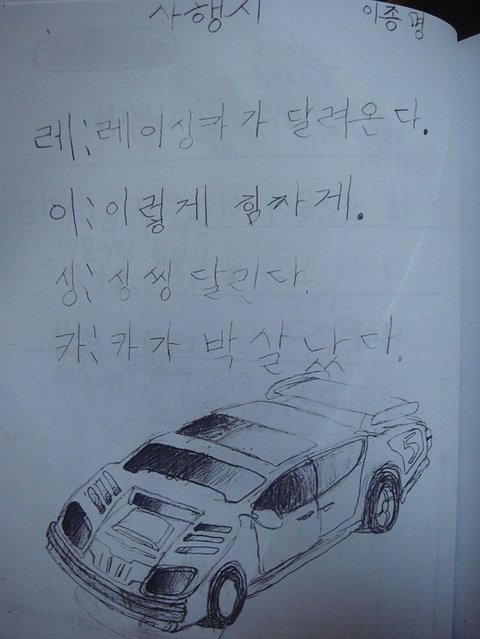 사행시 이종명
레: 레이싱카가 달려온다.
이: 이렇게 힘차게.
싱: 싱씽 달린다.
카: 카가 박살났다.
5